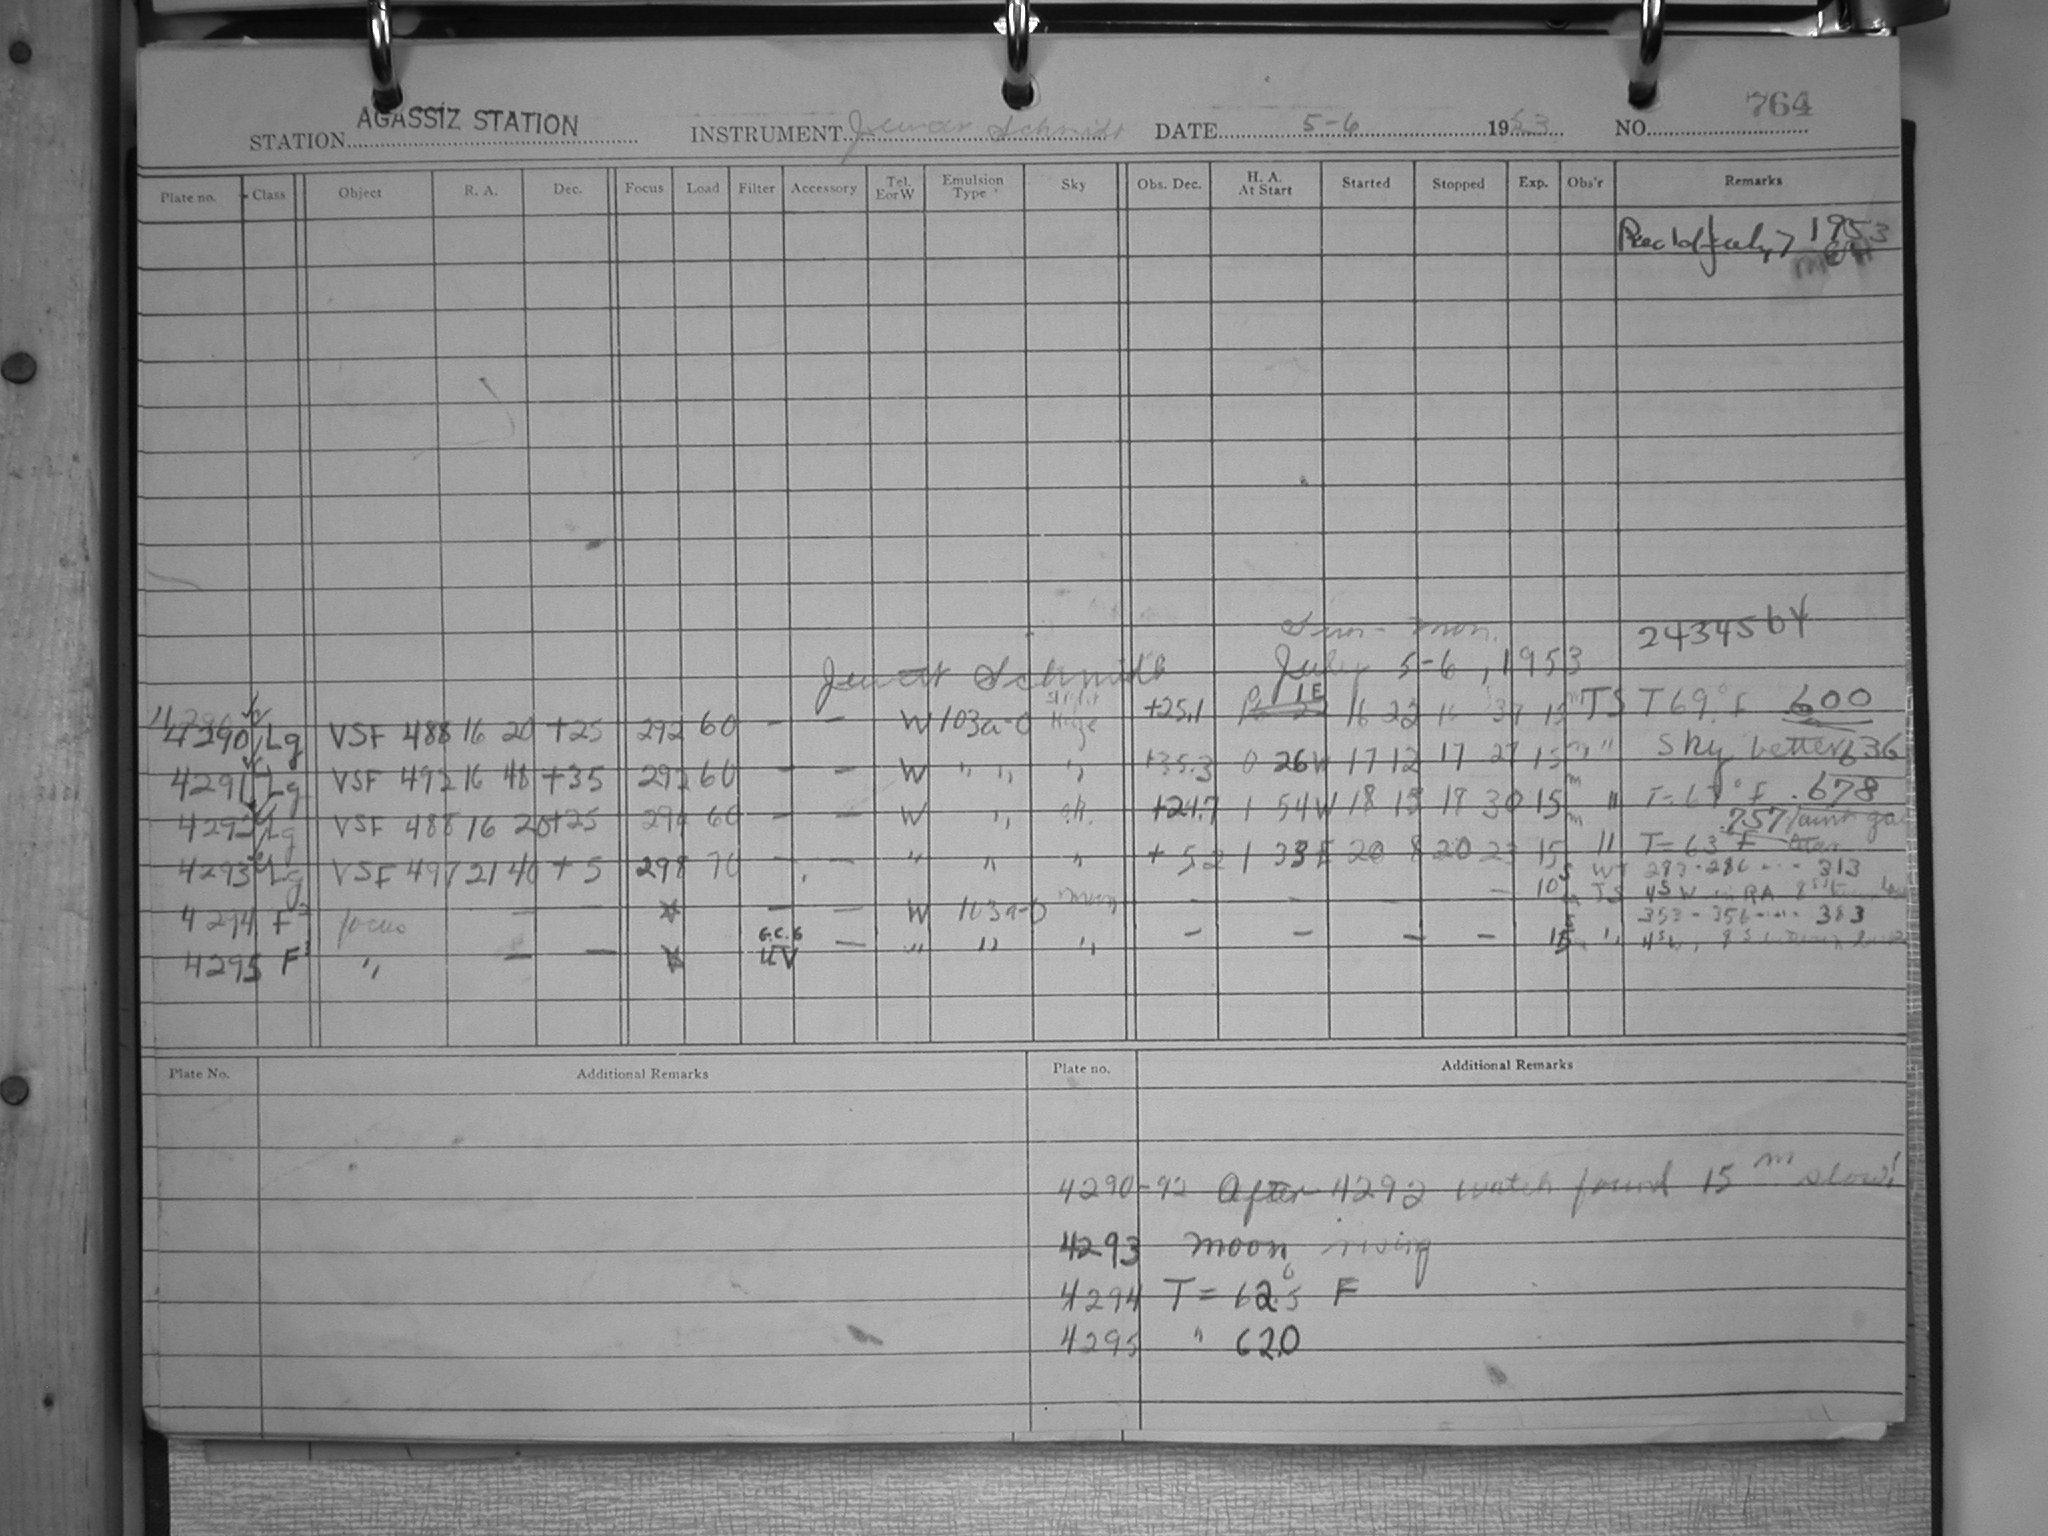 764
STATION AGASSIZ STATION INSTRUMENT Jewett Schmidt DATE 5-6 1953 NO.
Plate no. Class Object R. A. Dec. Focus Load Filter Accessory Tel. E or W Emulsion Type Sky Obs. Dec. H. A. At Start Started Stopped Exp. Obs'r Remarks
Rec'd July 7 1953
Sun - Mon.
2434564
Jewett Schmidt July 5-6, 1953
4290 Lg VSF 488 16 20 +25 292 60 - - W 103a-O slight Haze +25.1 1E 16 22 16 37 15m TS T 69°F .600
4291 Lg VSF 492 16 48 +35 292 60 - - W " " " +35.3 0 26W 17 12 17 27 15m " Sky better .636
4292 Lg VSF 488 16 20 +25 60 - - W " +24.7 1 54W 18 15 18 30 15m " T= °F .678
.757 faint
4293 Lg VSF 497 21 40 +5 298 70 - - " " " +5.2 1 33E 20 8 20 23 15 " T= 63°F
283-286 .... 313
4294 F focus - - - - W 103a-O moon - - - - 10 TS
353-356 .... 383
4295 F " - - G.C.G UV - " " " - - - - 15 "
Plate No. Additional Remarks Plate no. Additional Remarks
4290-92 After 4292 watch found 15m slow!
4293 Moon rising
4294 T = 62.5° F
4295 " 62.0